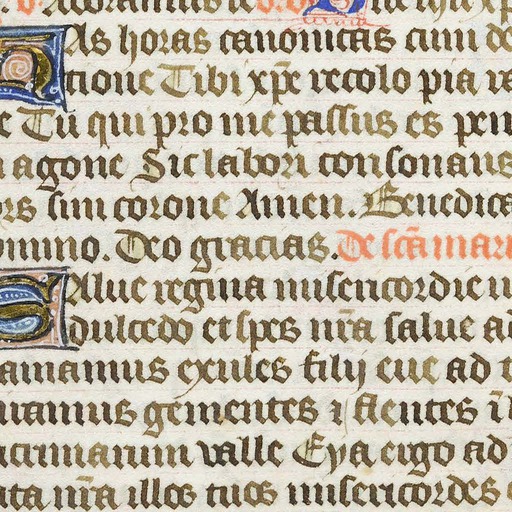 as horas canonicas cum de
tione Tibi xp̄e recolo pia ra
Tu qui pro me passus es pen
agone Sic labori consonans
ors sim corone Amen. Benedica
omino. Deo gracias. De sc̄a mar
alue regina misericordie
dulcedo et spes nr̄a salue ad
amamus exules filij eue ad
iramus gementes ⁊ flentes ī
acrimarum valle Eya ergo ad
ata nr̄a illos tuos misericordes